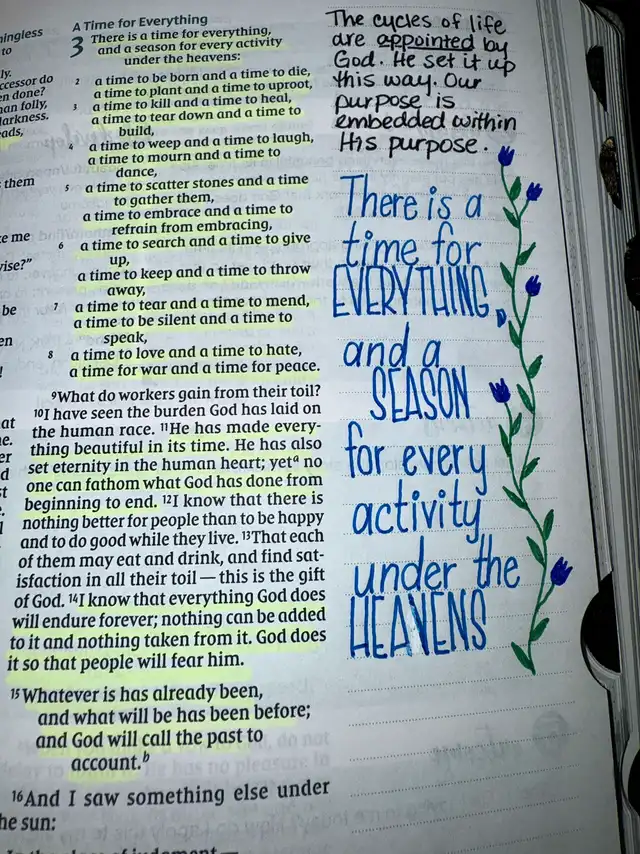 ningless
to
ly.
ccessor do
en done?
nan folly,
darkness.
eads,
them
e me
vise?"
be
en
!
at
ne.
er
d
st
A Time for Everything
3 There is a time for everything,
and a season for every activity
under the heavens:
2 a time to be born and a time to die,
a time to plant and a time to uproot,
3 a time to kill and a time to heal,
a time to tear down and a time to
build,
4 a time to weep and a time to laugh,
a time to mourn and a time to
dance,
5 a time to scatter stones and a time
to gather them,
a time to embrace and a time to
refrain from embracing,
6 a time to search and a time to give
up,
a time to keep and a time to throw
away,
7 a time to tear and a time to mend,
a time to be silent and a time to
speak,
8 a time to love and a time to hate,
a time for war and a time for peace.
9What do workers gain from their toil?
10I have seen the burden God has laid on
the human race. 11He has made every-
thing beautiful in its time. He has also
set eternity in the human heart; yeta no
one can fathom what God has done from
beginning to end. 12I know that there is
nothing better for people than to be happy
and to do good while they live. 13That each
of them may eat and drink, and find sat-
isfaction in all their toil — this is the gift
of God. 14I know that everything God does
will endure forever; nothing can be added
to it and nothing taken from it. God does
it so that people will fear him.
15Whatever is has already been,
and what will be has been before;
and God will call the past to
account.b
16And I saw something else under
he sun:
The cycles of life
are appointed by
God. He set it up
this way. Our
purpose is
embedded within
His purpose.
There is a
time for
EVERYTHING,
and a
SEASON
for every
activity
under the
HEAVENS